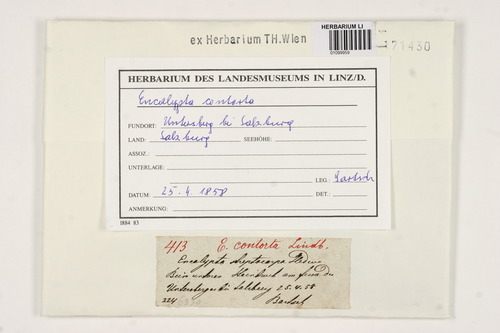 ex Herbarium TH.Wien
HERBARIUM LI
71430
HERBARIUM DES LANDESMUSEUMS IN LINZ/D.
Encalypta contorta
FUNDORT: Untersberg bei Salzburg
LAND: Salzburg SEEHÖHE:
ASSOZ.:
UNTERLAGE:
LEG.: Bartsch
DATUM: 25. 4. 1858 DET.:
ANMERKUNG:
1884 83
413 E. contorta Lindb.
Encalypta streptocarpa Hedw.
Beim unteren am des
Untersberges bei Salzburg 25.4.58
224 Bartsch